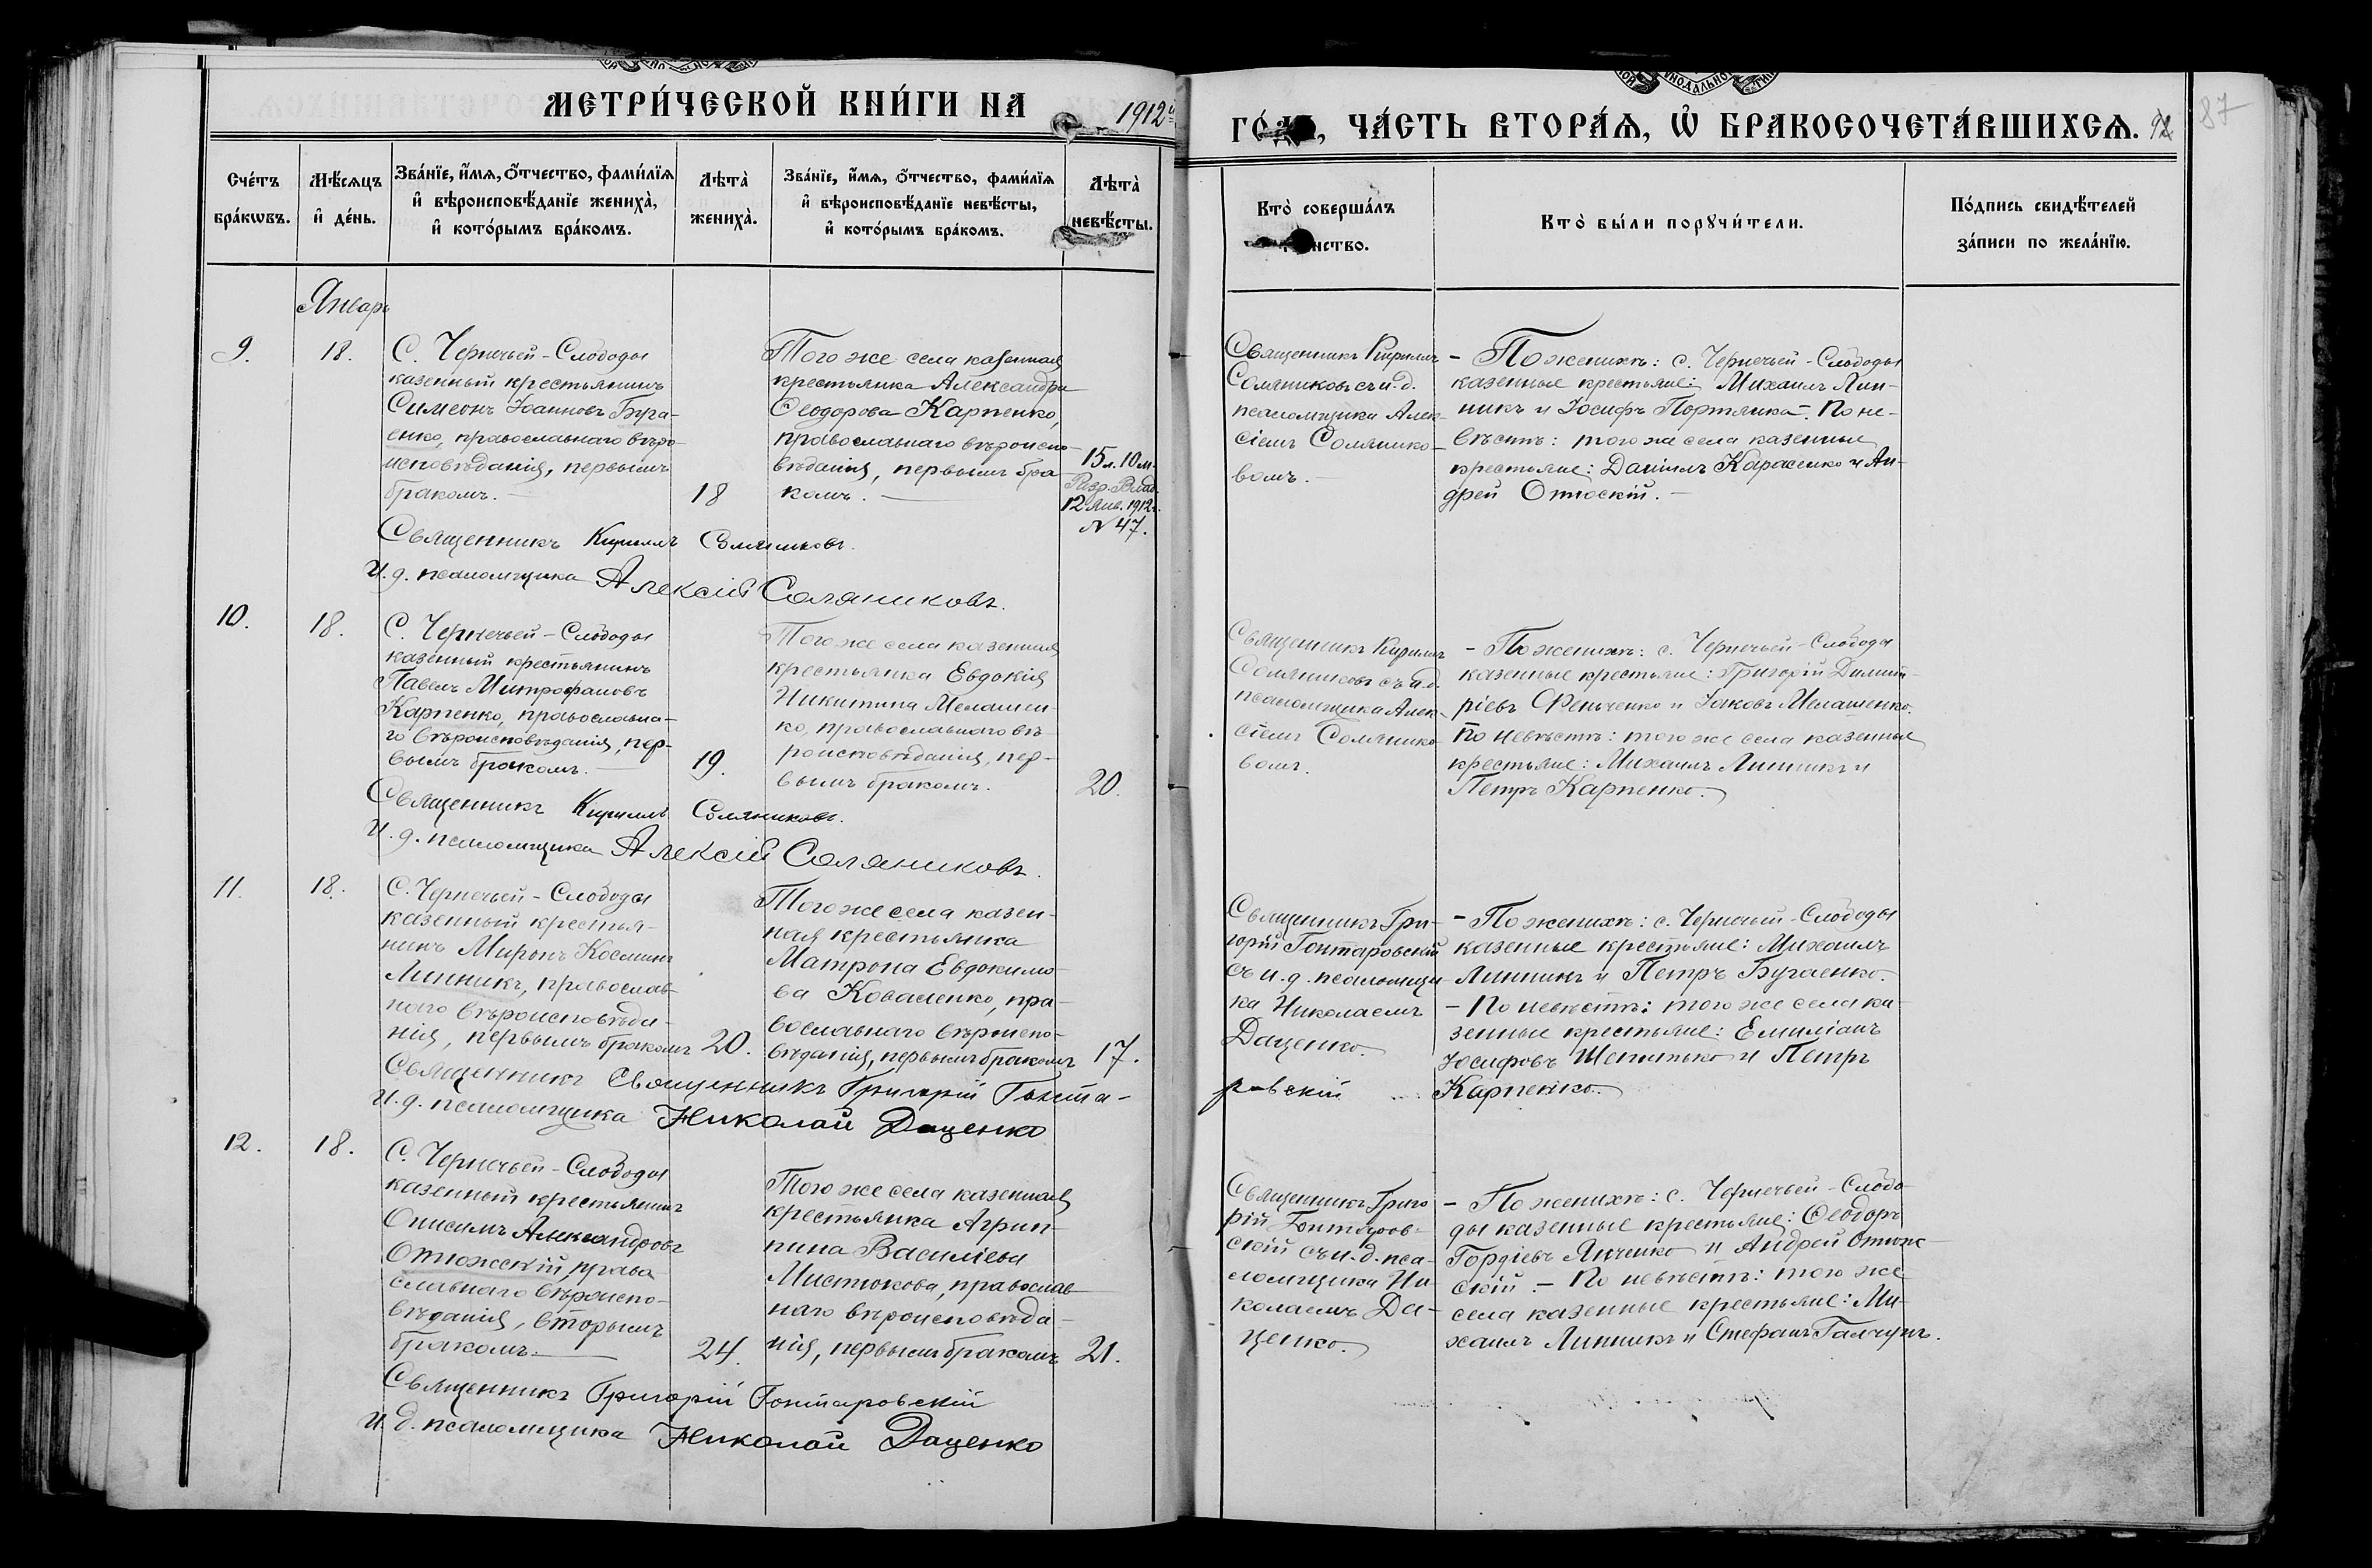 МЕТРИ́ЧЕСКОЙ КНИ́ГИ НА 1912й
ГО , ЧА́СТЬ ВТОРА́Ѧ, Ѽ БРАКОСОЧЕТА́ВШИХСѦ.
87
Сче́тъ бра́кѡвъ.
Мѣ́сѧцъ и҆ де́нь.
Зва́нїе, и҆́мѧ, ѻ҆́тчество, фами́лїѧ
и҆ вѣроисповѣ́данїе жениха̀,
и҆ кото́рымъ бра́комъ.
Лѣта̀ жениха̀.
Зва́нїе, и҆́мѧ, ѻ҆́тчество, фами́лїѧ
и҆ вѣроисповѣ́данїе невѣ́сты,
и҆ кото́рымъ бра́комъ.
Лѣта̀
невѣ́сты.
Кто̀ соверша́лъ
нство.
Кто̀ бы́ли порꙋчи́тели.
По́дпись свидѣ́телей
за́писи по жела́нїю.
Январь
9.
18.
С. Чернечьей-Слободы
казенный крестьянинъ
Симеонъ Іоанновъ Буга-
енко, православнаго вѣро-
исповѣданія, первымъ
бракомъ.
18
Того же села казенная
крестьянка Александра
Ѳеодорова Карпенко,
православнаго вѣроиспо-
вѣданія, первымъ бра-
комъ.
15 л. 10 м.
Разр. Влад.
12 Янв. 1912 г.
№ 47.
Священникъ Кириллъ
Солянниковъ съ и. д.
псаломщика Алек-
сіемъ Соляннико-
вомъ.
- По женихѣ: с. Чернечьей-Слободы
казенные крестьяне: Михаилъ Лин-
никъ и Іосифъ Портянка. По не-
вѣстѣ: того же села казенные
крестьяне: Даніилъ Карасенко и Ан-
дрей Отюскій.
Священникъ Кириллъ Солянниковъ.
И. д. псаломщика Алексій Соляниковъ.
10.
18.
С. Чернечьей-Слободы
казенный крестьянинъ
Павелъ Митрофановъ
Карпенко, православна-
го вѣроисповѣданія, пер-
вымъ бракомъ.
19.
Того же села казенная
крестьянка Евдокія
Никитина Мелашен-
ко, православнаго вѣ-
роисповѣданія, пер-
вымъ бракомъ.
20.
Священникъ Кириллъ
Солянниковъ съ и. д.
псаломщика Алек-
сіемъ Соляннико-
вомъ.
- По женихѣ: с. Чернечьей-Слободы
казенные крестьяне: Григорій Димит-
ріевъ Фенченко и Іаковъ Мелашенко.
По невѣстѣ: того же села казенные
крестьяне: Михаилъ Линникъ и
Петръ Карпенко.
Священникъ Кириллъ Солянниковъ.
И. д. псаломщика Алексій Соляниковъ.
11.
18.
С. Чернечьей-Слободы
казенный крестья-
нинъ Миронъ Косминъ
Линникъ, православ-
наго вѣроисповѣда-
нія, первымъ бракомъ
20.
Того же села казен-
ная крестьянка
Матрона Евдокимо-
ва Коваленко, пра-
вославнаго вѣроиспо-
вѣданія, первымъ бракомъ
17.
Священникъ Гри-
горій Гонтаровскій
съ и. д. псаломщи-
ка Николаемъ
Даценко.
- По женихѣ: с. Чернечьей-Слободы
казенные крестьяне: Михаилъ
Линникъ и Петръ Бугаенко.
- По невѣстѣ: того же села ка-
зенные крестьяне: Емиліанъ
Іосифовъ Шепитько и Петръ
Карпенко.
Священникъ Священникъ Григорій Гонта-
ровскій
И. д. псаломщика Николай Даценко
12.
18.
С. Чернечьей-Слободы
казенный крестьянинъ
Онисимъ Александровъ
Отюжскій, право
славнаго вѣроиспо-
вѣданія, вторымъ
бракомъ.
24.
Того же села казенная
крестьянка Агрип-
пина Василіева
Мистюкова, православ-
наго вѣроисповѣда-
нія, первымъ бракомъ
21.
Священникъ Григо
рій Гонтаров-
скій съ и. д. пса-
ломщика Ни-
колаемъ Да-
ценко.
- По женихѣ: с. Чернечьей-Слобо-
ды казенные крестьяне: Ѳеодоръ
Гордіевъ Личенко и Андрей Отюж-
скій. - По невѣстѣ: того же
села казенные крестьяне: Ми-
хаилъ Линникъ и Стефанъ Галчунъ.
Священникъ Григорій Гонтаровскій
И. д. псаломщика Николай Даценко